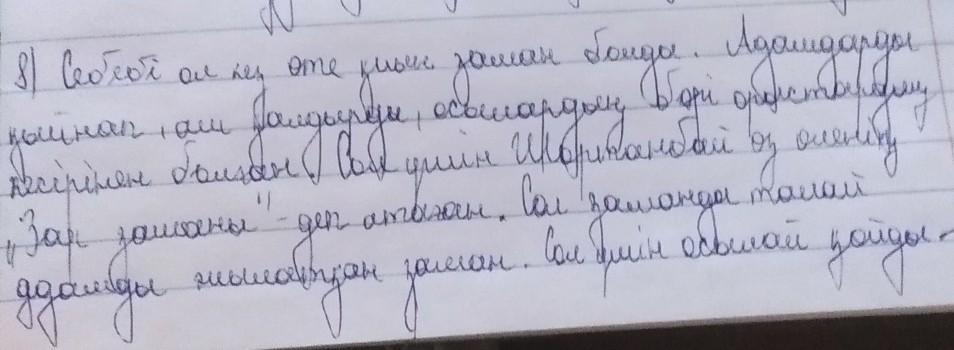 8) Себебі ол кез өте қиын заман болды. Адамдарды
қойнап, аш қалдырды, осылардың бәрі орыстардың
кесірінен болған. Сол үшін Шортанбай өз өлеңін
„Зар заманы" - деп атаған. Сол заманда талай
адамды жылатқан заман. Сол үшін осылай қойды.